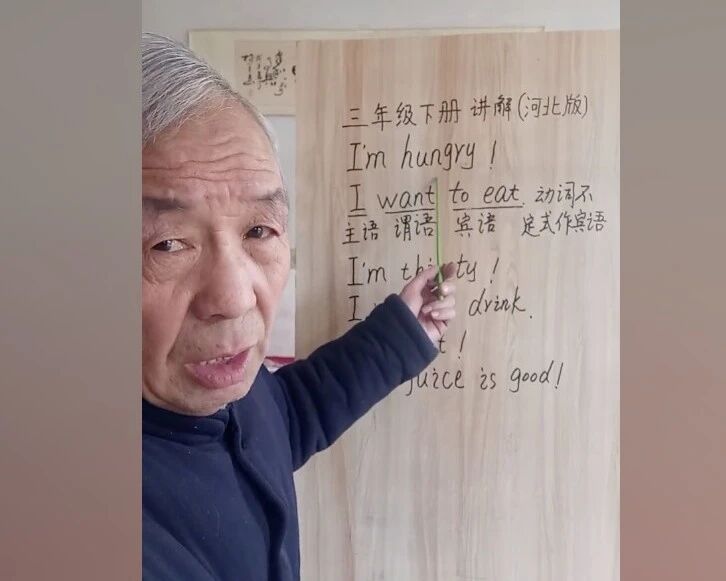 三年级下册 讲解(河北版)
I'm hungry!
I want to eat. 动词不
主语 谓语 宾语 定式作宾语
I'm !
I drink.
!
juice is good!